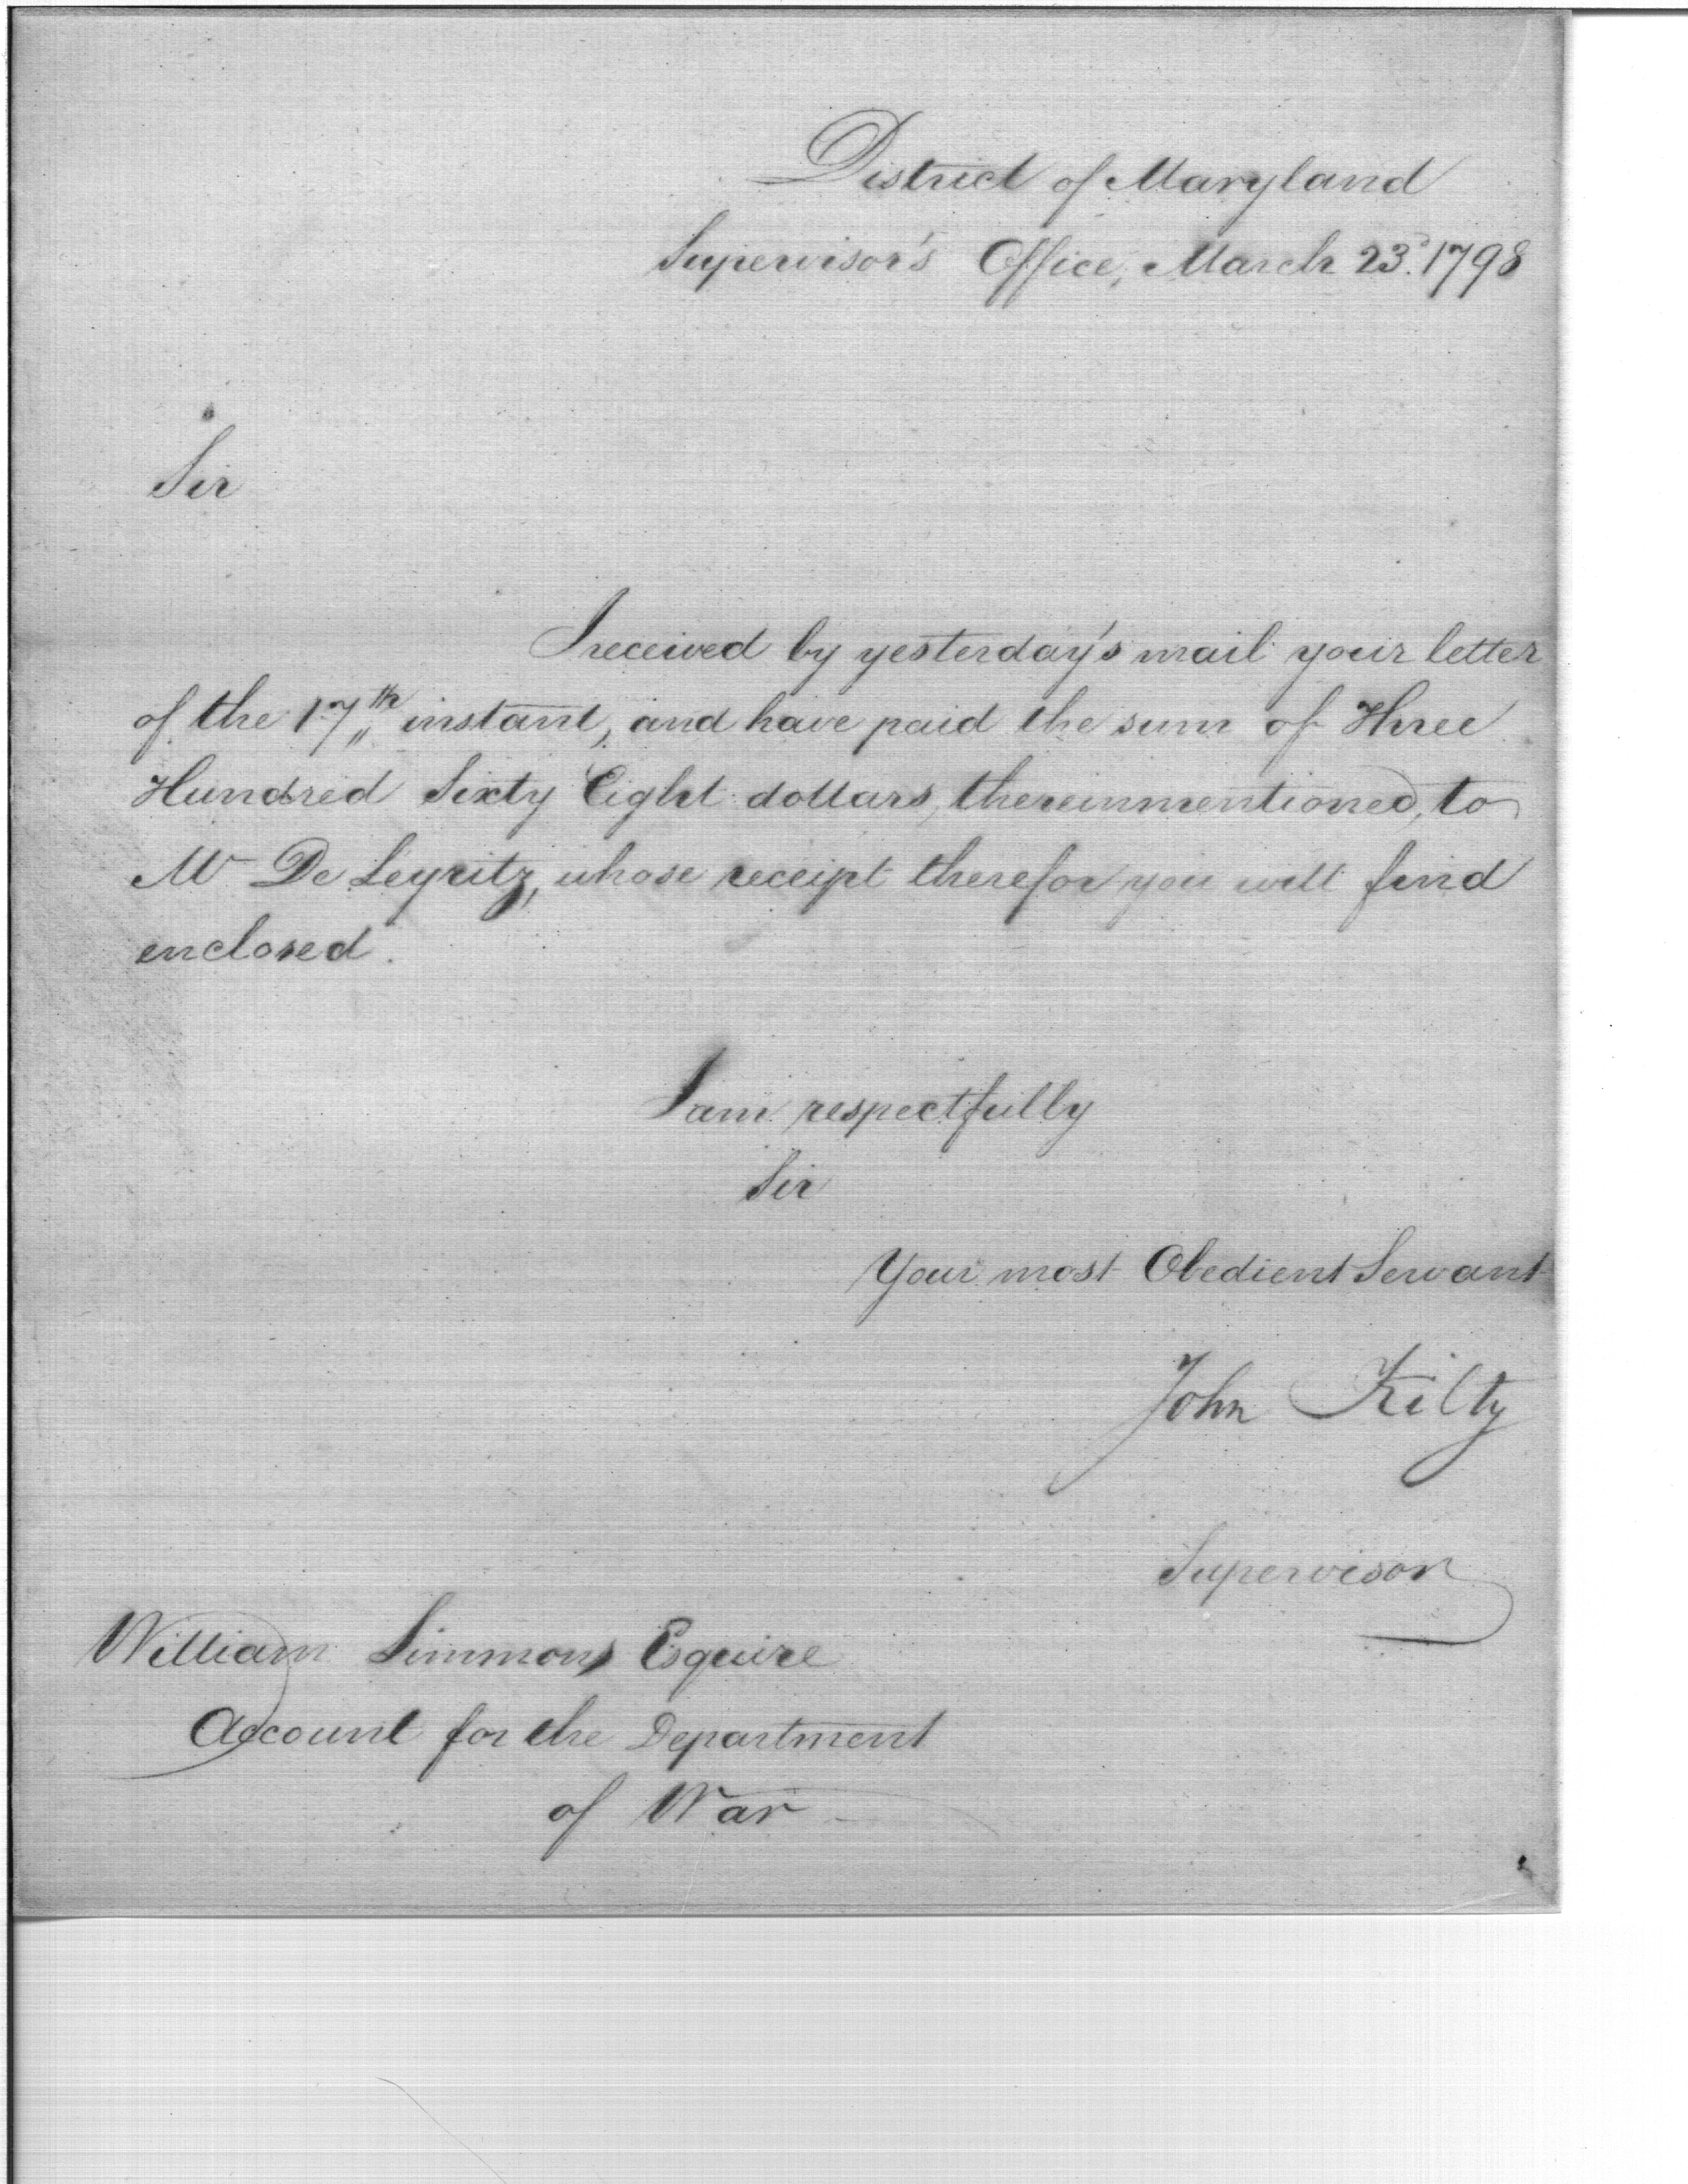 District of Maryland
Supervisor's Office, March 23d. 1798
Sir
I received by yesterday's mail your letter
of the 17th instant, and have paid the sum of Three
Hundred Sixty Eight dollars, thereinmentioned, to
Mr De Leyritz, whose receipt therefor you will find
enclosed.
I am respectfully
Sir
Your most Obedient Servant
John Kilty
Supervisor
William Simmons Esquire
Account for the Department
of War